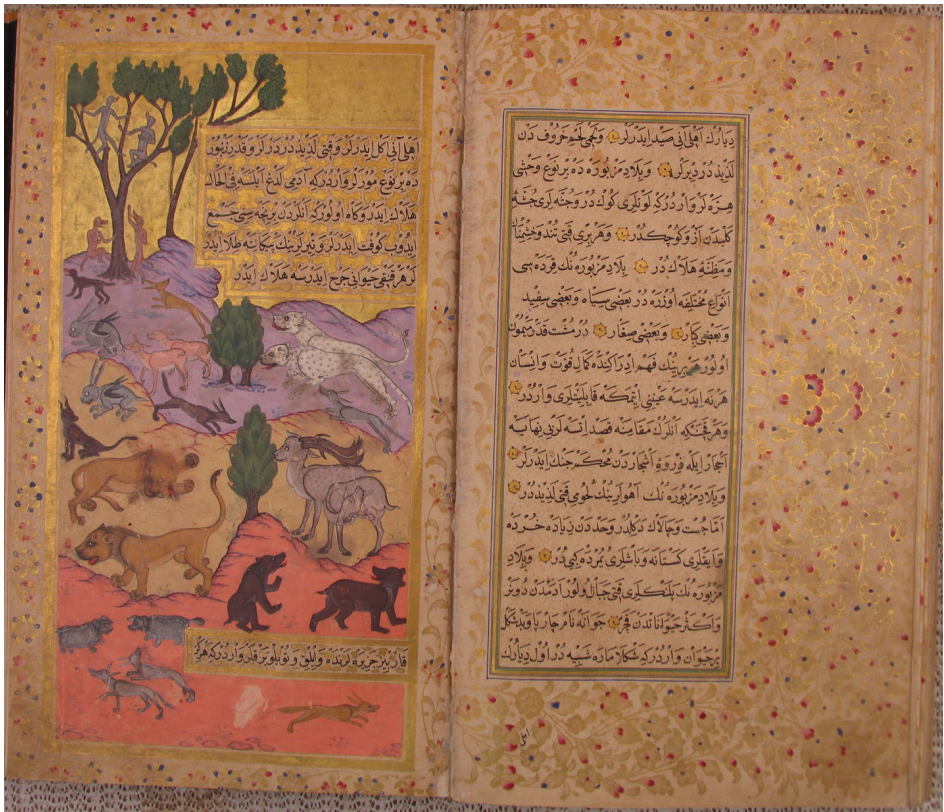 دیارك اهلی آنی صید ایدرلر و لحمی لحم خروف دن
لذیذدر دیرلر و بلاد مزبوره ده بر نوع وحشی
هره لر واردركه لونلری كوك در و جثه لری جثۀ
كلبدن آز كوچكدر و هر بری قتی تند و خشمناك
و مظنۀ هلاك در بلاد مزبوره نك قرده سی
انواع مختلفه اوزره در بعضی سیاه و بعضی سفید
و بعضی كبار و بعضی صغار در مشت قدر میمون
اولور هر برینك فهم ادراكنده كمال قوت و انسان
هر نه ایدرسه عینی ایتمكه قابلیتلری واردر
و هر قچنكه آنلرك مقامنه قصد اتسه لر بی نهایه
احجار ایله فروۀ اشجاردن محكم جنك ایدرلر
و بلاد مزبوره نك آهولرینك لحومی قتی لذیذدر
اما چست و چالاك دكلدر و حددن زیاده خرده
و ایقلری كستانه و باشلری بمرده كبی در و بلاد
مزبوره نك پلنكلری قتی جبال اولور آدمدن دونر
و اكثر حیواناتدن قچر جواته نام چارپا و بد شكل
بر حیوان واردركه شكلا ماره شبیه در اول دیارك
اهلی
اهلی آنی اكل ایدرلر و قتی لذیذدر درلر و قدر زنبور
ده بر نوع مورلر واردركه آدمی لدغ ایلسه فی الحال
هلاك ایدر و كاه اولوركه آنلردن بر نچه سی جمع
ایدوب كوفت ایدرلر و تیرلرینك پیكاننه طلا ایدر
لر هر قنقی حیوانی جرح ایدرسه هلاك ایدر
و ابلق و واردركه هركز